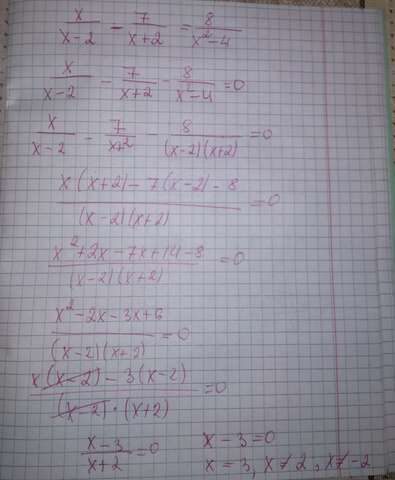 x/(x-2) - 7/(x+2) = 8/(x²-4)
x/(x-2) - 7/(x+2) - 8/(x²-4) = 0
x/(x-2) - 7/(x+2) - 8/((x-2)(x+2)) = 0
(x(x+2)-7(x-2)-8)/((x-2)(x+2)) = 0
(x²+2x-7x+14-8)/((x-2)(x+2)) = 0
(x²-2x-3x+6)/((x-2)(x+2)) = 0
(x(x-2)-3(x-2))/((x-2)·(x+2)) = 0
(x-3)/(x+2) = 0 x-3=0
x=3, x≠2, x≠-2